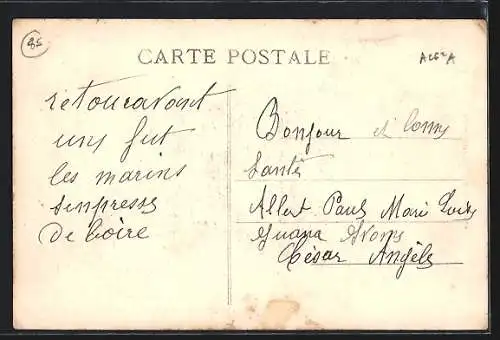 85
CARTE POSTALE
retoucavont
uns fut
les marins
sempresse
de boire
Bonjour et bonne
santé
Albert Paul Marie Louis
Juana
César Angèle